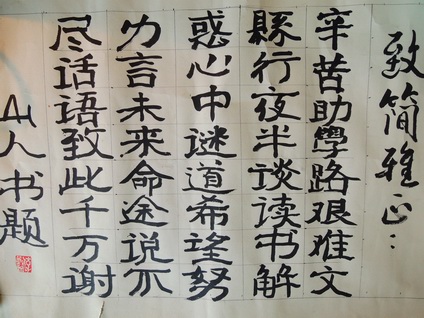 致简雅正:
辛苦助學路艰难文
縣行夜半谈读书解
惑心中谜道希望努
力言未来命途说不
尽话语致此千万谢
山人书题